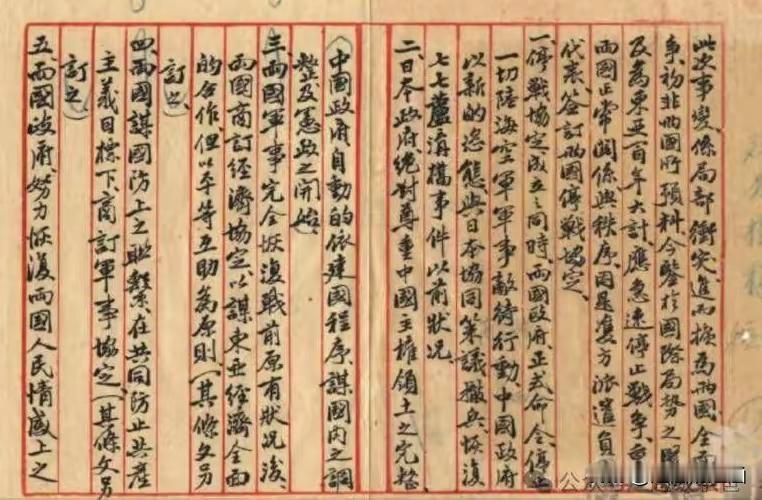 此次事變、係局部衝突、進而擴為兩國全面
爭、初非兩國所預料、今鑒於國際局勢之
及為東亞百年大計、應急速停止戰爭、
兩國正常關係與秩序、因是雙方派遣負
代表、簽訂兩國停戰協定、
一、停戰協定成立之同時、兩國政府正式命令停止
一切陸海空軍軍事敵待行動、中國政府
以新的姿態與日本協同策議撤兵、恢復
七七蘆溝橋事件以前狀況、
二日本政府絕對尊重中國主權領土之完整
(中國政府自動的依建國程序謀國內之調
整及憲政之開始)
三、兩國軍事完全恢復戰前原有狀況後、
兩國商訂經濟協定、以謀東亞經濟全面
的合作、但以平等互助為原則(其條文另
訂之)
四、兩國謀國防上之聯繫、在共同防止共產
主義目標下、商訂軍事協定、(其條文另
訂之)
五、兩國政府努力恢復兩國人民情感上之
公众号